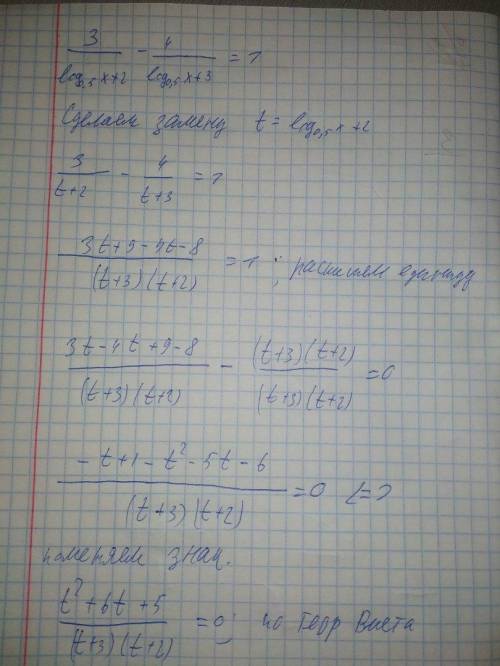 3/(log₀,₅x+2) - 4/(log₀,₅x+3) = 1
Сделаем замену t = log₀,₅x+2
3/(t+2) - 4/(t+3) = 1
(3t+9-4t-8)/((t+3)(t+2)) = 1; распишем единицу
(3t-4t+9-8)/((t+3)(t+2)) - ((t+3)(t+2))/((t+3)(t+2)) = 0
(-t+1-t²-5t-6)/((t+3)(t+2)) = 0
поменяем знак.
(t²+6t+5)/((t+3)(t+2)) = 0; по теор Виета